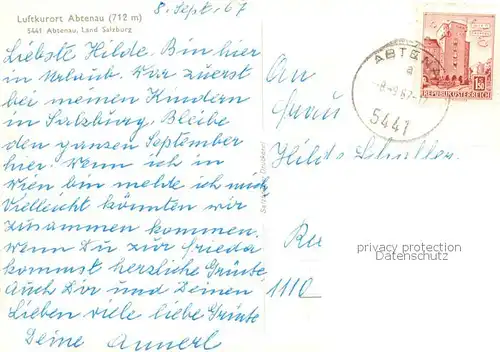 8. Sept. 67
Luftkurort Abtenau (712 m)
5441 Abtenau, Land Salzburg
Liebste Hilde. Bin hier
in Urlaub. War zuerst
bei meinen Kindern
in Salzburg. Bleibe
den ganzen September
hier. Wenn ich in
Wien bin melde ich mich
Vielleicht könnten wir
zusammen kommen.
Wenn Du zur Frieda
kommst herzliche Grüße
Auch Dir und Deinen
Lieben viele liebe Grüße
Deine Annerl
ABTENAU
a
-8.-9.67-
5441
1.50
REPUBLIK ÖSTERREICH
An
Frau
Hilde
1110
privacy protection